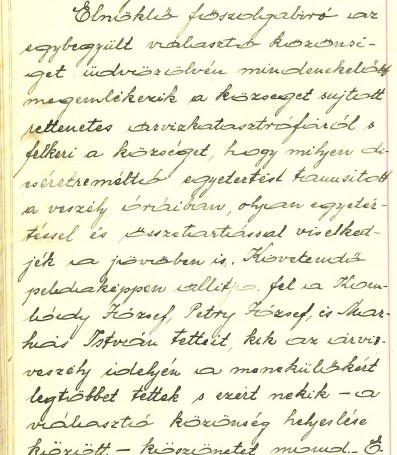 Elnöklő főszolgabíró az
egybegyűlt választó közönsé-
get üdvözölvén mindenekelőtt
megemlékezik a községet sujtott
rettenetes árvizkatasztrófáról s
felkéri a községet, hogy milyen di-
cséretreméltó egyetértést tanusított
a veszély óráiban, olyan egyetér-
téssel és összetartással viselked-
jék a jövőben is. Követendő
példaképpen állítja fel a Kom-
lódy József, Petry József, és Már-
kus István tetteit, kik az árviz-
veszély idején a menekülőkért
legtöbbet tettek s ezért nekik – a
választó közönség helyeslése
között – köszönetet mond. – E